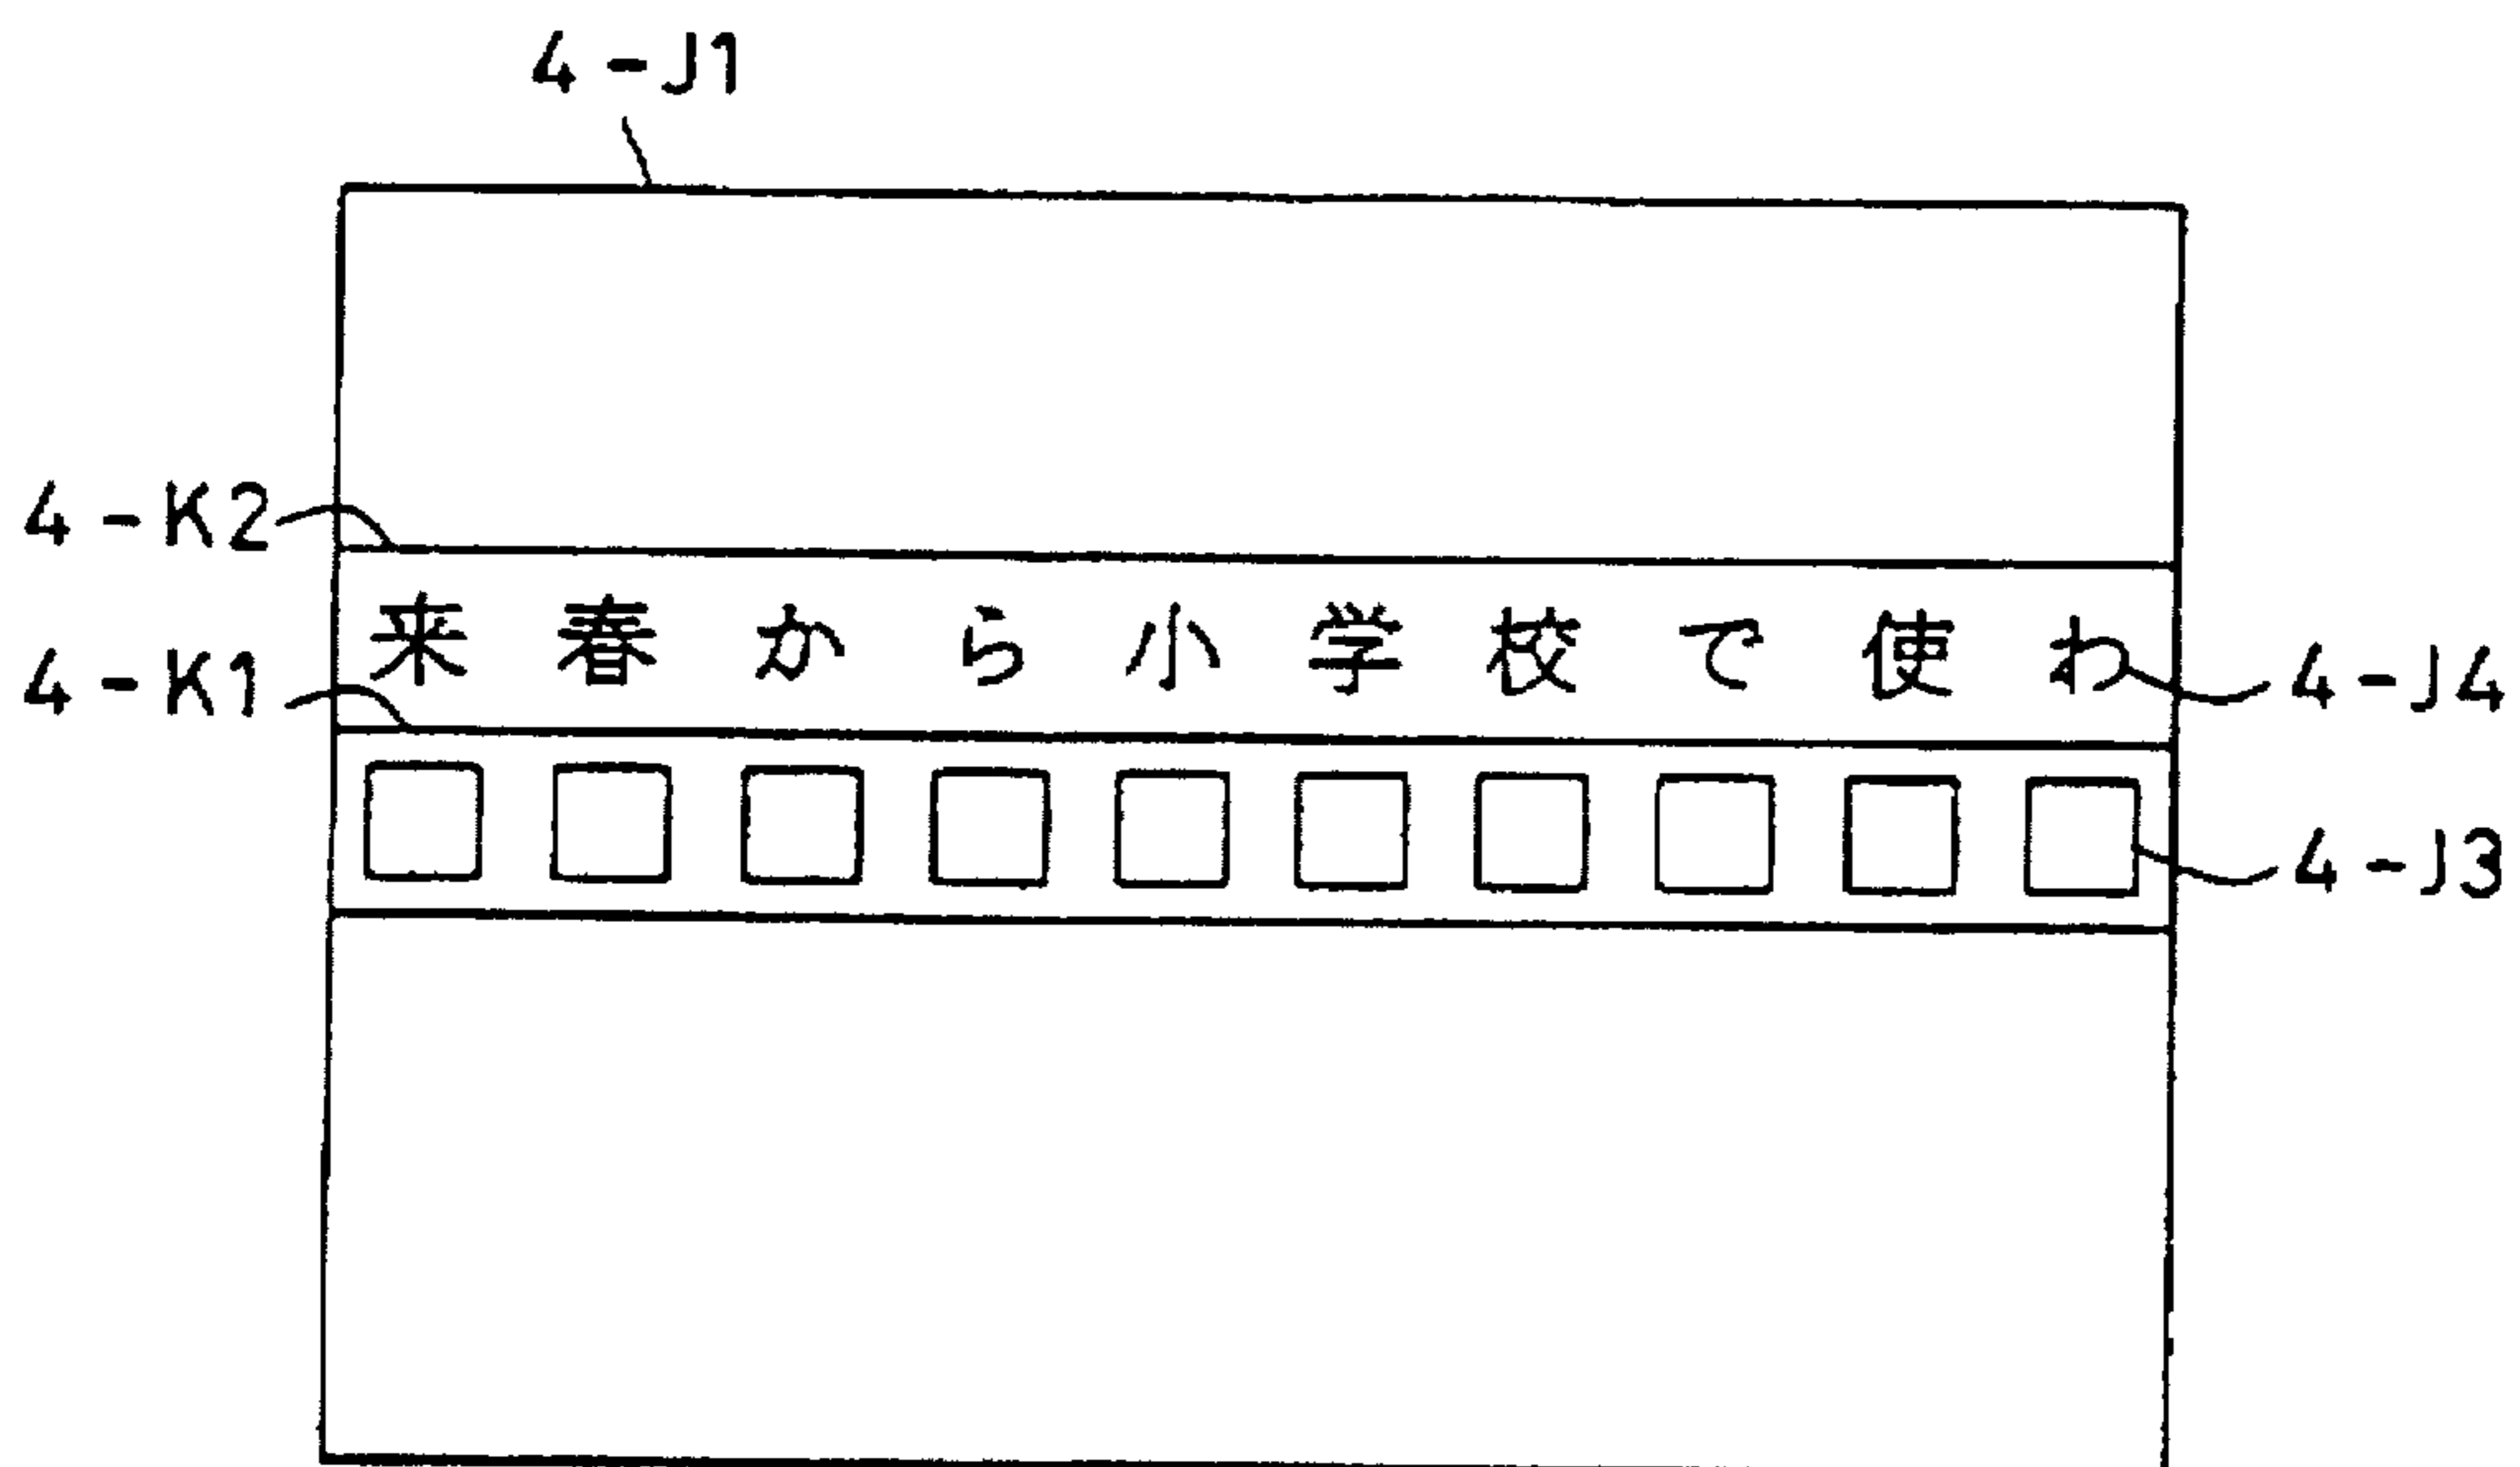 4-J1
4-K2
来春から小学校で使わ
4-K1
4-J4
4-J3